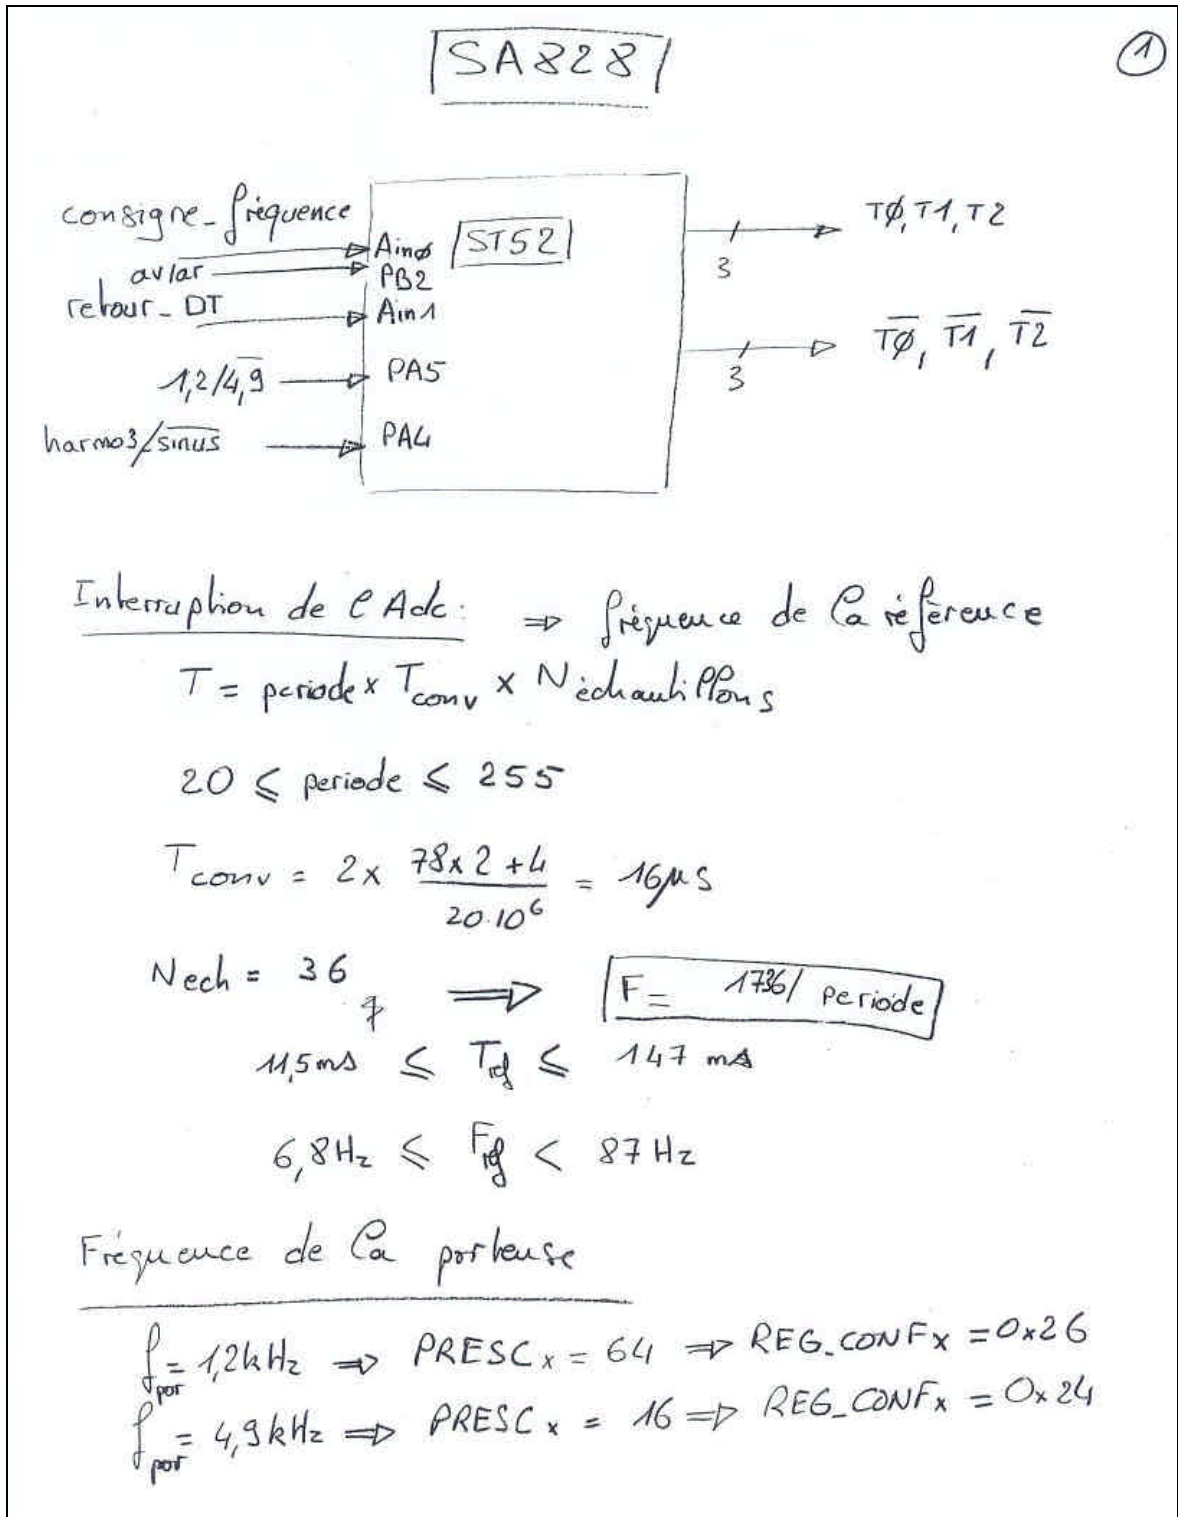 SA828
1
consigne_fréquence
Ainø
ST52
Tø, T1, T2
av/ar
PB2
3
retour_DT
Ain1
T̅ø̅, T̅1̅, T̅2̅
3
1,2/4,9̅
PA5
harmo3/s̅i̅n̅u̅s̅
PA4
Interruption de l'Adc: ⇒ fréquence de la référence
T = periode x Tconv x Néchantillons
20 ⩽ periode ⩽ 255
Tconv = 2x (78x2+4)/(20.10⁶) = 16µs
Nech = 36 ⇒ F = 1736/ periode
11,5ms ⩽ Tref ⩽ 147 ms
6,8Hz ⩽ Fref < 87 Hz
Fréquence de la porteuse
fpor = 1,2kHz ⇒ PRESCx = 64 ⇒ REG_CONFx = 0x26
fpor = 4,9kHz ⇒ PRESCx = 16 ⇒ REG_CONFx = 0x24